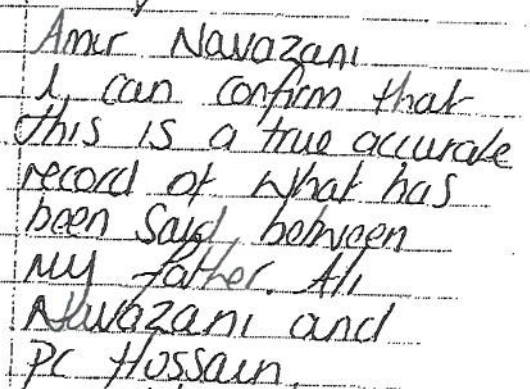 Amir Navazani
I can confirm that
this is a true accurate
record of what has
been said, between
my father. Ali
Navazani and
PC Hossain.